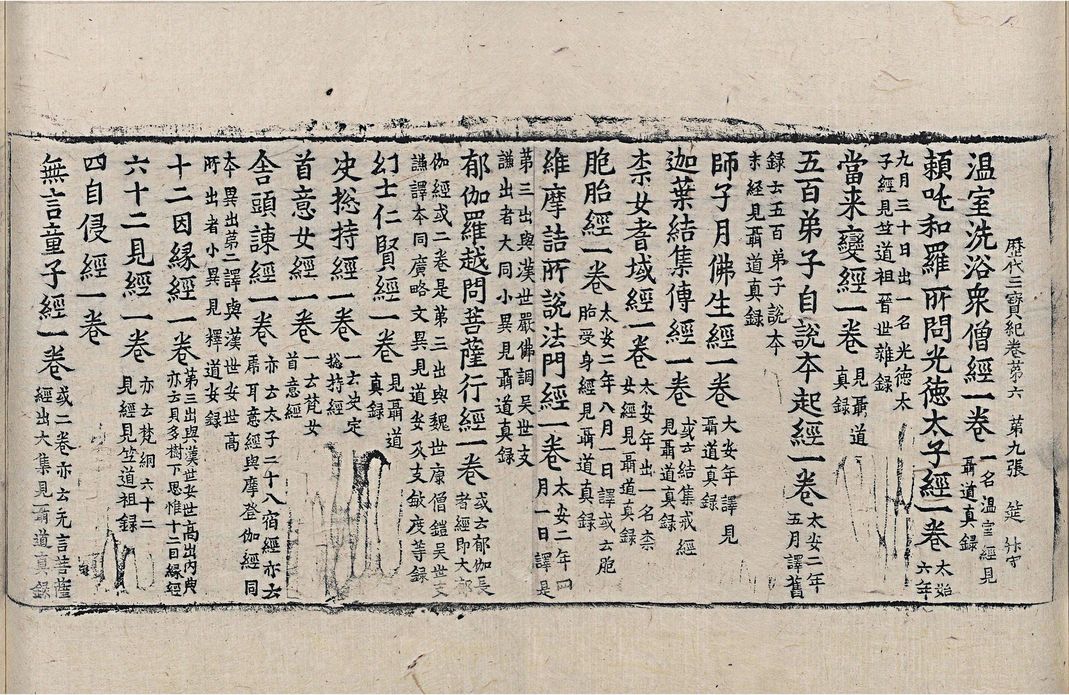 歷代三寶紀卷第六 第九張 筵
温室洗浴衆僧經一卷 一名温室經見聶道真録
頼吒和羅所問光徳太子經一卷 太始六年
九月三十日出一名光徳太子經見竺道祖晉世雜録
當来變經一卷 見聶道真録
五百弟子自說本起經一卷 太安二年五月譯舊
録云五百弟子說本末經見聶道真録
師子月佛生經一卷 大安年譯見聶道真録
迦葉結集傳經一卷 或云結集戒經見聶道真録
柰女耆域經一卷 太安年出一名柰女經見聶道真録
胞胎經一卷 太安二年八月一日譯或云胞胎受身經見聶道真録
維摩詰所說法門經一卷 太安二年四月一日譯是
第三出與漢世嚴佛調吴世支謙出者大同小異見聶道真録
郁伽羅越問菩薩行經一卷 或云郁伽長者經即大郡
伽經或二卷是第三出與魏世康僧鎧吴世支謙譯本同廣略文異見道安及支敏度等録
幻士仁賢經一卷 見聶道真録
決揔持經一卷 一云決定揔持經
首意女經一卷 一云梵女首意經
舎頭諫經一卷 亦云太子二十八宿經亦云席耳意經與摩登伽經同
本異出第二譯與漢世安世高所出者小異見釋道安録
十二因縁經一卷 第三出與漢世安世高出内典亦云貝多樹下思惟十二因縁經
六十二見經一卷 亦云梵網六十二見經見竺道祖録
四自侵經一卷
無言童子經一卷 或二卷亦云无言菩薩經出大集見聶道真録